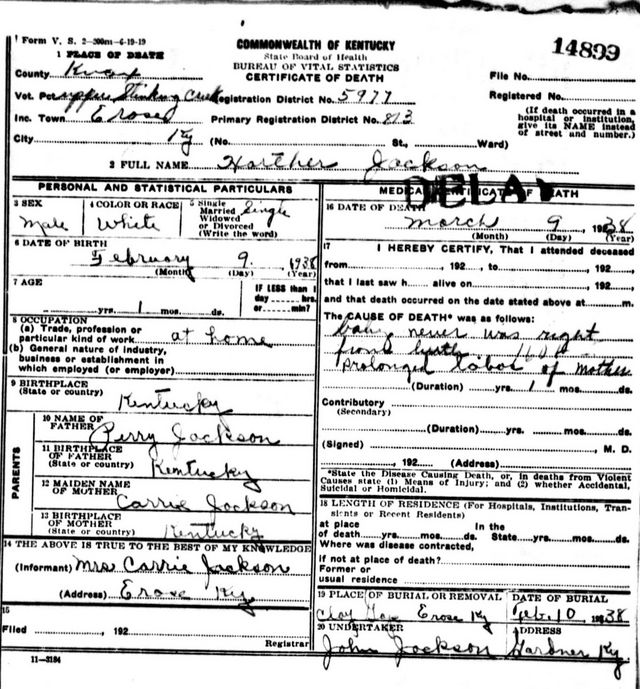 Form V. S. 2-300m-6-19-19
1 PLACE OF DEATH
COMMONWEALTH OF KENTUCKY
State Board of Health
BUREAU OF VITAL STATISTICS
CERTIFICATE OF DEATH
14899
County Knox
File No.
Vot. Pct. Stinking Creek Registration District No. 5977
Registered No.
Inc. Town Erose Primary Registration District No. 813
(If death occurred in a hospital or institution, give its NAME instead of street and number.)
City Ky (No. St., Ward)
2 FULL NAME Harther Jackson
DELA
PERSONAL AND STATISTICAL PARTICULARS
3 SEX Male
4 COLOR OR RACE White
5 Single Married Widowed or Divorced (Write the word) Single
6 DATE OF BIRTH
February 9, 1938
(Month) (Day) (Year)
7 AGE
yrs. 1 mos. ds.
IF LESS than 1 day hrs. or min?
8 OCCUPATION
(a) Trade, profession or particular kind of work at home
(b) General nature of industry, business or establishment in which employed (or employer)
9 BIRTHPLACE
(State or country) Kentucky
PARENTS
10 NAME OF FATHER Perry Jackson
11 BIRTHPLACE OF FATHER
(State or country) Kentucky
12 MAIDEN NAME OF MOTHER Carrie Jackson
13 BIRTHPLACE OF MOTHER
(State or country) Kentucky
14 THE ABOVE IS TRUE TO THE BEST OF MY KNOWLEDGE
(Informant) Mrs Carrie Jackson
(Address) Erose Ky
15
Filed , 192
Registrar
11-3184
MEDICAL CERTIFICATE OF DEATH
16 DATE OF DEATH
March 9, 1938
(Month) (Day) (Year)
17 I HEREBY CERTIFY, That I attended deceased
from , 192 , to , 192 ,
that I last saw h alive on , 192 ,
and that death occurred on the date stated above at m.
The CAUSE OF DEATH* was as follows:
baby never was right
from birth
prolonged labor of mother
(Duration) yrs. 1 mos. ds.
Contributory
(Secondary)
(Duration) yrs. mos. ds.
(Signed) , M. D.
, 192 (Address)
*State the Disease Causing Death, or, in deaths from Violent Causes state (1) Means of Injury; and (2) whether Accidental, Suicidal or Homicidal.
18 LENGTH OF RESIDENCE (For Hospitals, Institutions, Transients or Recent Residents)
at place of death yrs. mos. ds. In the State yrs. mos. ds.
Where was disease contracted,
if not at place of death?
Former or
usual residence
19 PLACE OF BURIAL OR REMOVAL DATE OF BURIAL
Clay Gap Erose Ky Feb. 10 1938
20 UNDERTAKER ADDRESS
John Jackson Gardner Ky